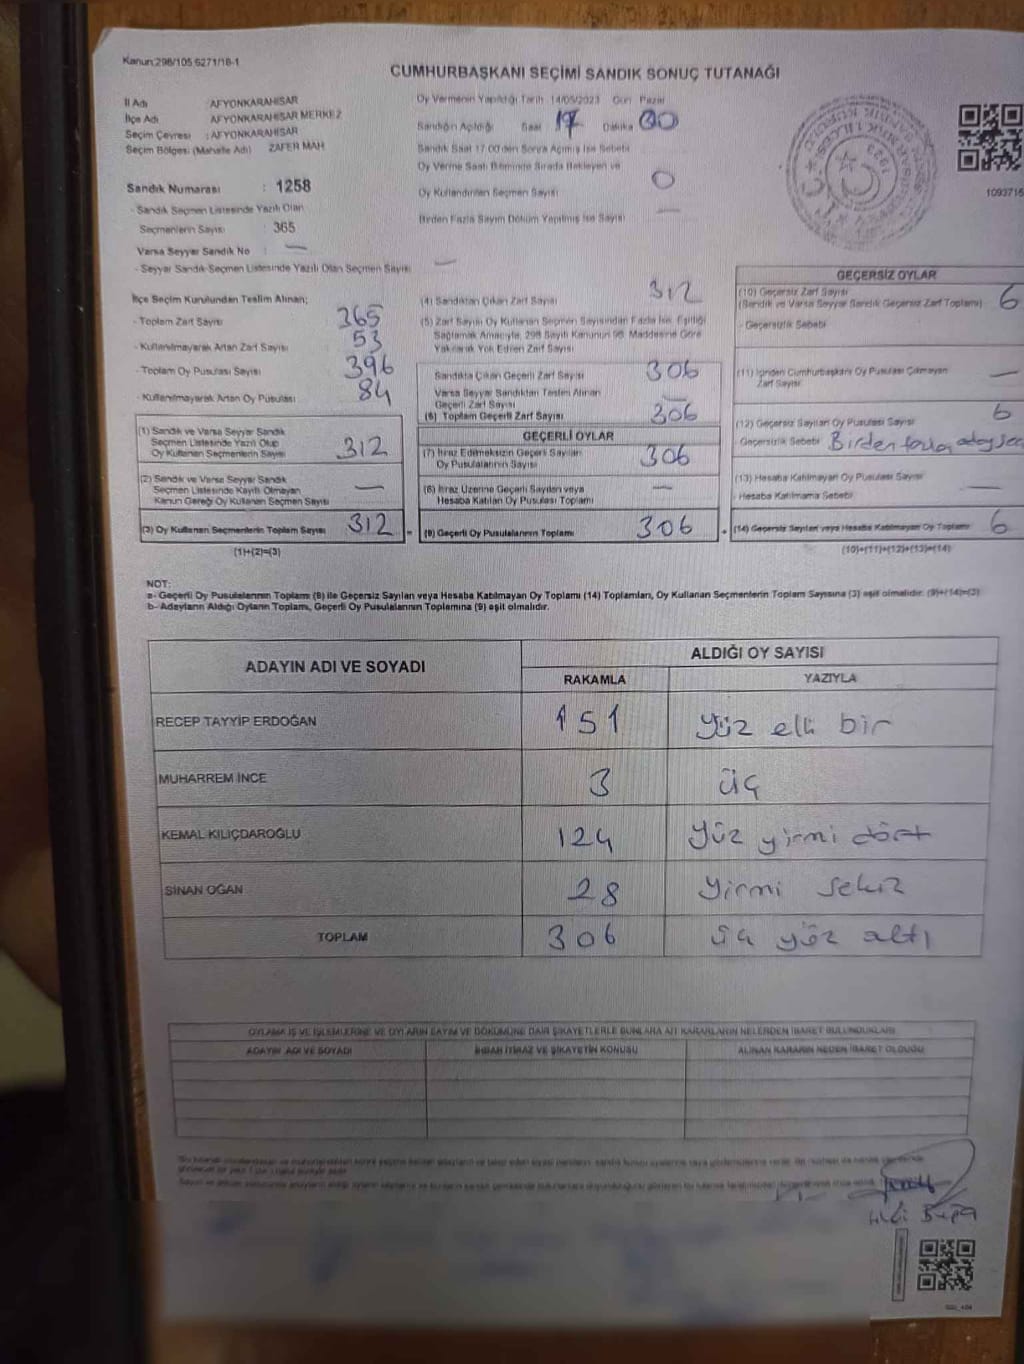 Kanun:298/105,6271/18-1
CUMHURBAŞKANI SEÇİMİ SANDIK SONUÇ TUTANAĞI
İl Adı : AFYONKARAHİSAR
İlçe Adı AFYONKARAHİSAR MERKEZ
Seçim Çevresi : AFYONKARAHİSAR
Seçim Bölgesi (Mahalle Adı) ZAFER MAH
Sandık Numarası : 1258
- Sandık Seçmen Listesinde Yazılı Olan
Seçmenlerin Sayısı 365
Varsa Seyyar Sandık No : —
- Seyyar Sandık Seçmen Listesinde Yazılı Olan Seçmen Sayısı —
Oy Vermenin Yapıldığı Tarih 14/05/2023 Gün Pazar
Sandığın Açıldığı Saat 17 Dakika 00
Sandık Saat 17.00'den Sonra Açılmış İse Sebebi
Oy Verme Saati Bitiminde Sırada Bekleyen ve
Oy Kullandırılan Seçmen Sayısı 0
Birden Fazla Sayım Döküm Yapılmış İse Sayısı —
1093716
İlçe Seçim Kurulundan Teslim Alınan;
- Toplam Zarf Sayısı 365
- Kullanılmayarak Artan Zarf Sayısı 53
- Toplam Oy Pusulası Sayısı 396
- Kullanılmayarak Artan Oy Pusulası 84
(1) Sandık ve Varsa Seyyar Sandık
Seçmen Listesinde Yazılı Olup
Oy Kullanan Seçmenlerin Sayısı 312
(2) Sandık ve Varsa Seyyar Sandık
Seçmen Listesinde Kayıtlı Olmayan
Kanun Gereği Oy Kullanan Seçmen Sayısı —
(3) Oy Kullanan Seçmenlerin Toplam Sayısı 312
(1)+(2)=(3)
(4) Sandıktan Çıkan Zarf Sayısı 312
(5) Zarf Sayısı Oy Kullanan Seçmen Sayısından Fazla İse, Eşitliği
Sağlamak Amacıyla, 298 Sayılı Kanunun 98. Maddesine Göre
Yakılarak Yok Edilen Zarf Sayısı
Sandıkta Çıkan Geçerli Zarf Sayısı 306
Varsa Seyyar Sandıktan Teslim Alınan
Geçerli Zarf Sayısı —
(6) Toplam Geçerli Zarf Sayısı 306
GEÇERLİ OYLAR
(7) İtiraz Edilmeksizin Geçerli Sayılan
Oy Pusulalarının Sayısı 306
(8) İtiraz Üzerine Geçerli Sayılan veya
Hesaba Katılan Oy Pusulası Toplamı —
(9) Geçerli Oy Pusulalarının Toplamı 306
GEÇERSİZ OYLAR
(10) Geçersiz Zarf Sayısı
(Sandık ve Varsa Seyyar Sandık Geçersiz Zarf Toplamı) 6
- Geçersizlik Sebebi
(11) İçinden Cumhurbaşkanı Oy Pusulası Çıkmayan
Zarf Sayısı —
(12) Geçersiz Sayılan Oy Pusulası Sayısı 6
- Geçersizlik Sebebi Birden fazla aday seç
(13) Hesaba Katılmayan Oy Pusulası Sayısı —
- Hesaba Katılmama Sebebi
(14) Geçersiz Sayılan veya Hesaba Katılmayan Oy Toplamı 6
(10)+(11)+(12)+(13)=(14)
NOT:
a- Geçerli Oy Pusulalarının Toplamı (9) ile Geçersiz Sayılan veya Hesaba Katılmayan Oy Toplamı (14) Toplamları, Oy Kullanan Seçmenlerin Toplam Sayısına (3) eşit olmalıdır. (9)+(14)=(3)
b- Adayların Aldığı Oyların Toplamı, Geçerli Oy Pusulalarının Toplamına (9) eşit olmalıdır.
ADAYIN ADI VE SOYADI ALDIĞI OY SAYISI
RAKAMLA YAZIYLA
RECEP TAYYİP ERDOĞAN 151 Yüz elli bir
MUHARREM İNCE 3 üç
KEMAL KILIÇDAROĞLU 124 yüz yirmi dört
SİNAN OĞAN 28 Yirmi sekiz
TOPLAM 306 üç yüz altı
OYLAMA İŞ VE İŞLEMLERİNE VE OYLARIN SAYIM VE DÖKÜMÜNE DAİR ŞİKAYETLERLE BUNLARA AİT KARARLARIN NELERDEN İBARET BULUNDUKLARI
ADAYIN ADI VE SOYADI İHBAR İTİRAZ VE ŞİKAYETİN KONUSU ALINAN KARARIN NEDEN İBARET OLDUĞU